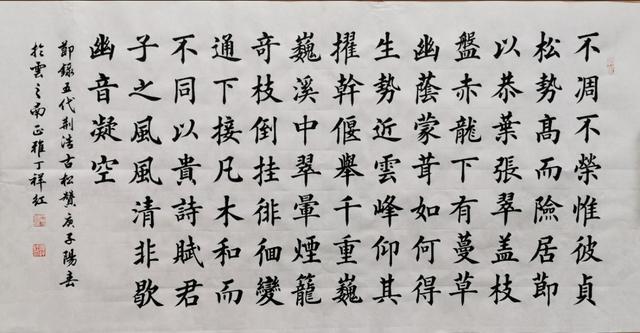 不凋不榮惟彼貞
松勢高而險居節
以恭葉張翠盖枝
盤赤龍下有蔓草
幽蔭蒙茸如何得
生勢近雲峰仰其
擢幹偃舉千重巍
巍溪中翠暈煙籠
奇枝倒挂徘徊變
通下接凡木和而
不同以貴詩賦君
子之風風清非歇
幽音凝空
節錄五代荆浩古松贊庚子陽春
於雲之南正雅丁祥红